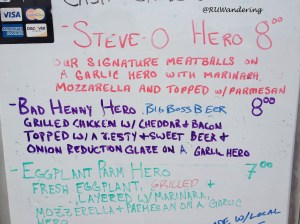 @RUWandering
VISA
DISCOVER
STEVE-O HERO 8⁰⁰
OUR SIGNATURE MEATBALLS ON
A GARLIC HERO WITH MARINARA,
MOZZARELLA AND TOPPED W/PARMESAN
-BAD HENNY HERO BIG BOSS BEER 8⁰⁰
GRILLED CHICKEN W/CHEDDAR & BACON
TOPPED W/A ZESTY + SWEET BEER +
ONION REDUCTION GLAZE ON A GARLL HERO
-EGGPLANT PARM HERO 7⁰⁰
FRESH EGGPLANT, GRILLED +
LAYERED W/MARINARA,
MOZZERELLA + PARMESAN ON A GARLIC
HERO
W/LOCAL